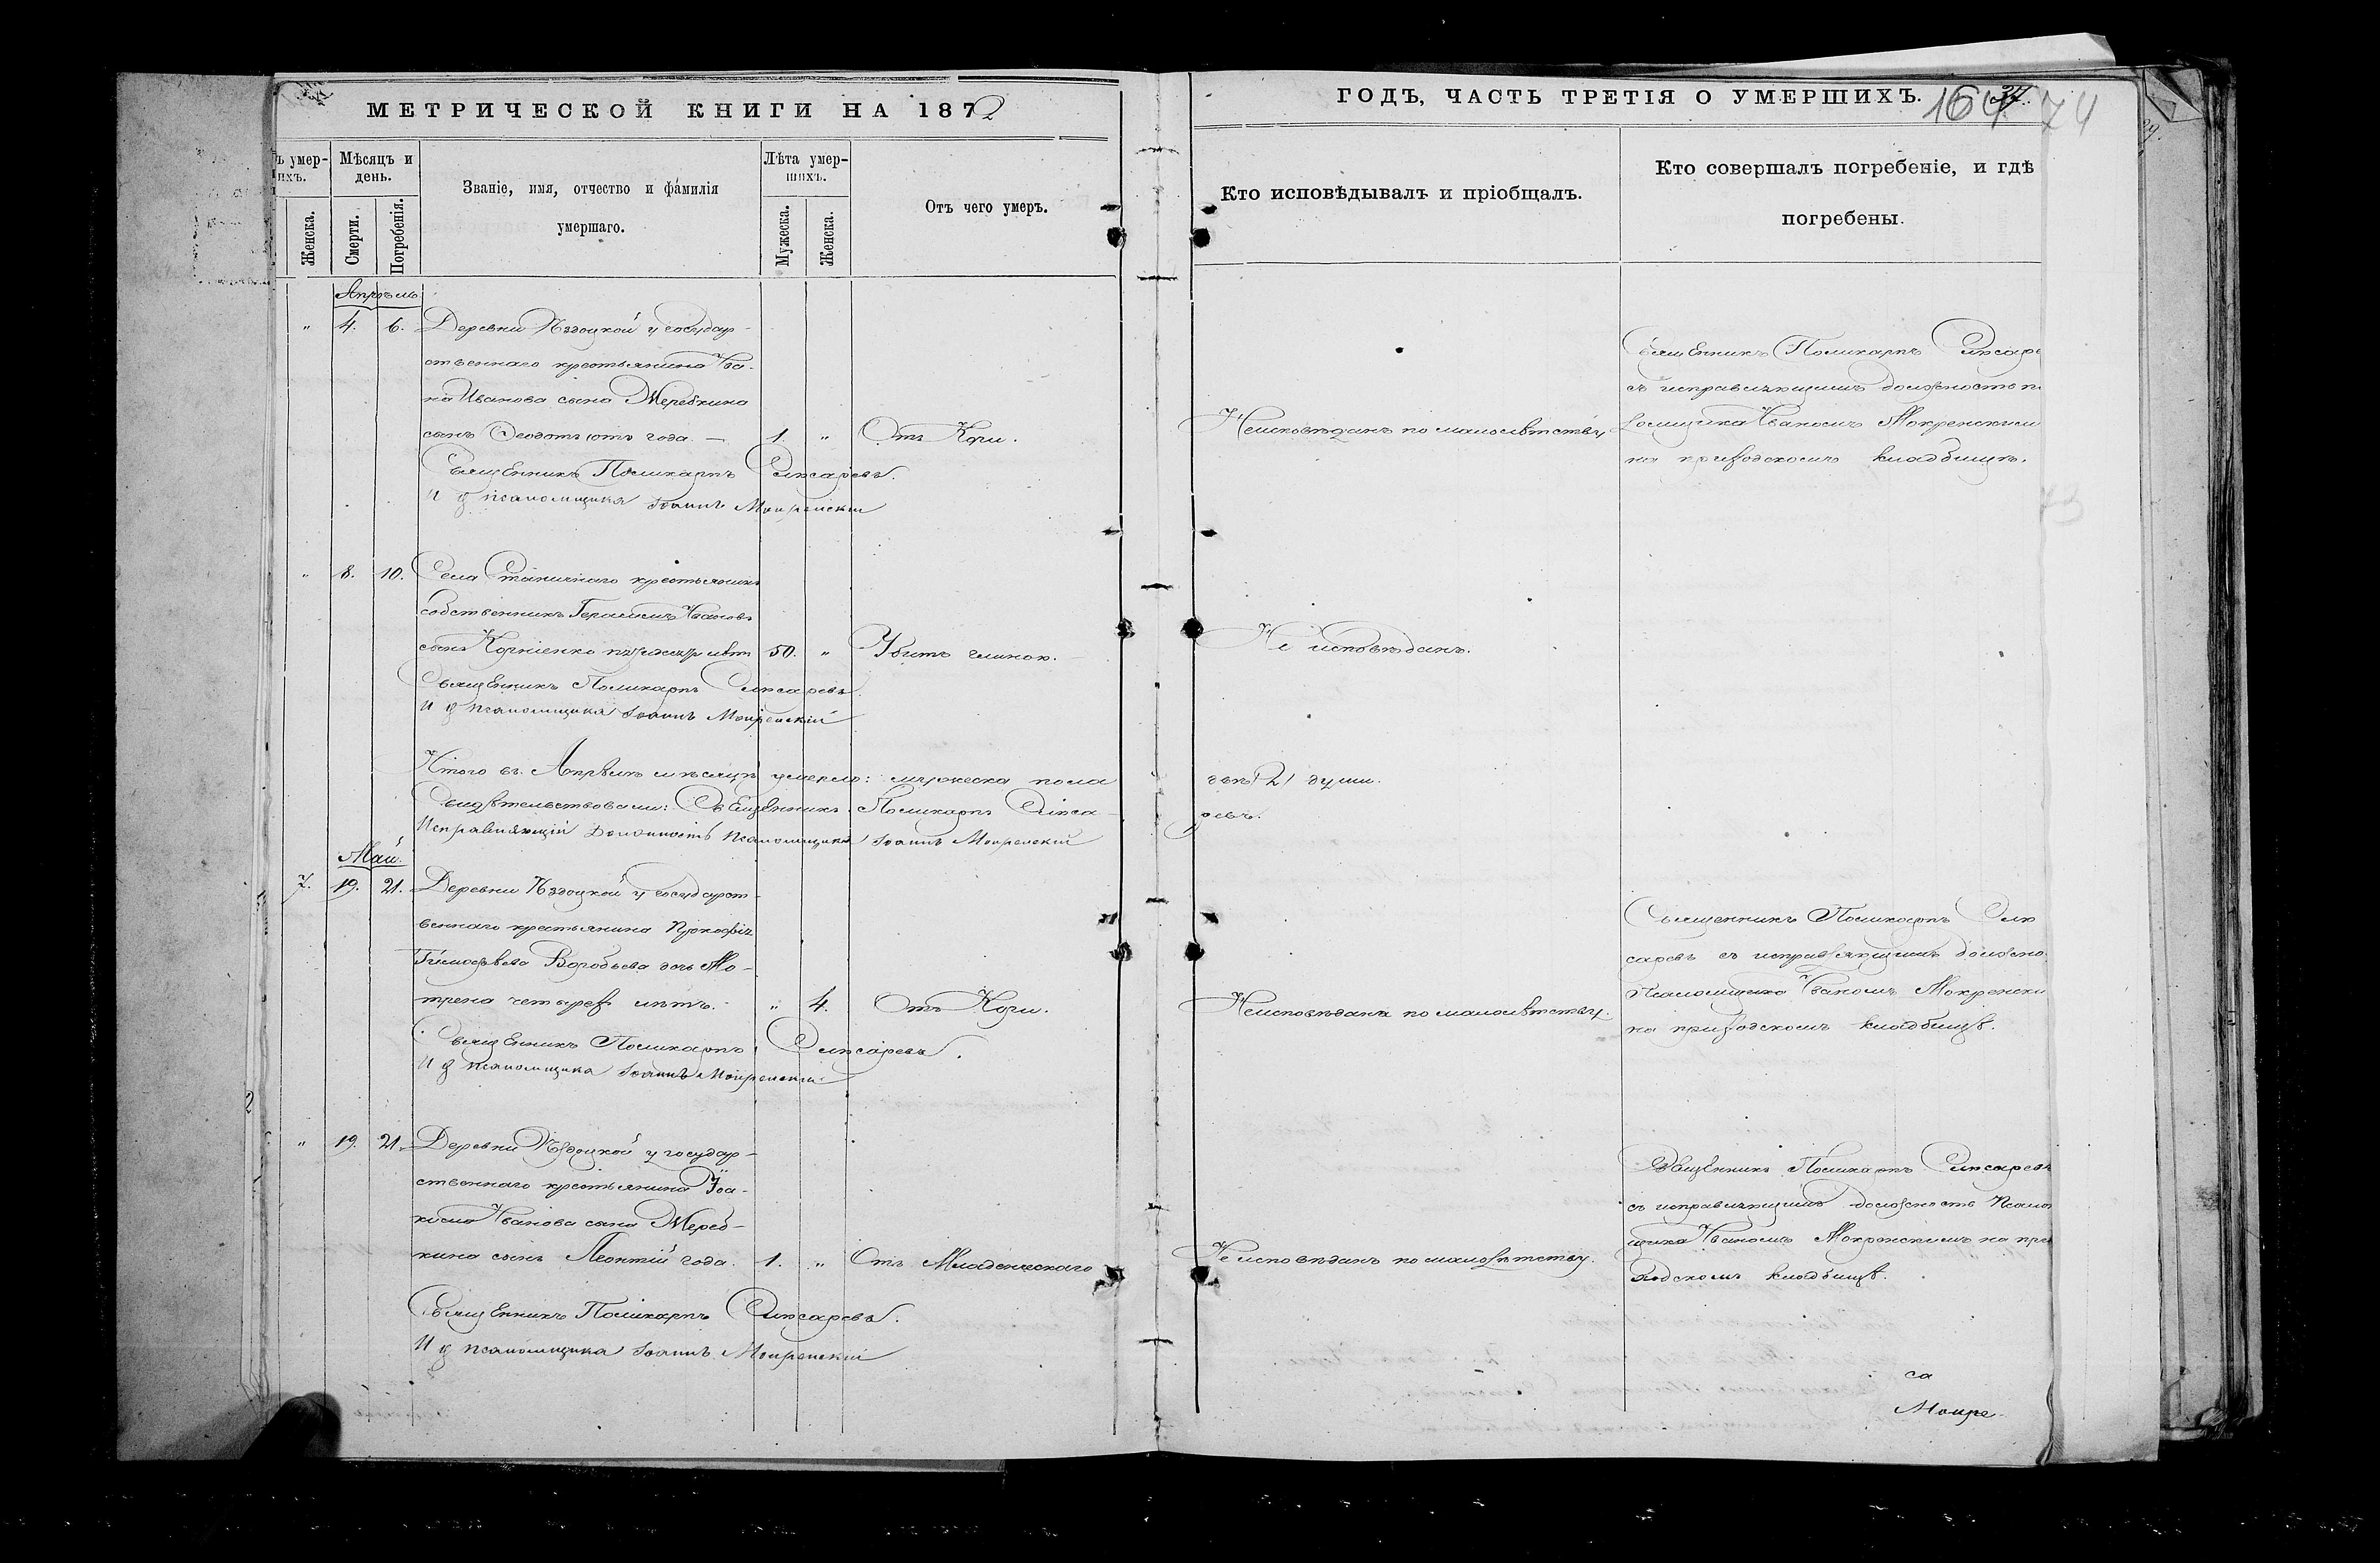 МЕТРИЧЕСКОЙ КНИГИ НА 1872
ГОДЪ, ЧАСТЬ ТРЕТІЯ О УМЕРШИХЪ.
164
74
ъ умер-
ихъ.
Женска.
Мѣсяцъ и
день.
Смерти.
Погребенія.
Званіе, имя, отчество и фамилія
умершаго.
Лѣта умер-
шихъ.
Мужеска.
Женска.
Отъ чего умеръ.
Кто исповѣдывалъ и пріобщалъ.
Кто совершалъ погребеніе, и гдѣ
погребены.
Апрѣль
" 4. 6. Деревни Ѣздоцкой у государ-
ственнаго крестьянина Ива-
на Иванова сына Меребкина
сынъ Ѳеодотъ года — 1. " Отъ Кори.
Священникъ Поликарпъ Слюсаревъ.
И д псаломщика Іоаннъ Мокренскій
Неисповѣданъ по малолѣтству
Священникъ Поликарпъ Слюсаре
съ исправляющимъ должность п
ломщика Иваномъ Мокренским
на приходскомъ кладбищѣ.
73
" 8. 10. Села Станичнаго крестьянинъ
собственникъ Герасимъ Ивановъ
сынъ Корніенко лѣт 50. " Убитъ глиною.
Священникъ Поликарпъ Слюсаревъ.
И д псаломщика Іоаннъ Мокренскій
Не исповѣданъ.
Итого въ Апрѣлѣ мѣсяцѣ умерло: мужеска пола двѣ (2) души.
Свидѣтельствовали: Священникъ Поликарпъ Слюса-
ревъ.
Исправляющій Должность Псаломщика Іоаннъ Мокренскій
Май.
7. 19. 21. Деревни Ѣздоцкой у государст-
веннаго крестьянина Прокофія
Тимофѣева Воробьева дочь Ма-
трена четырехъ лѣтъ. " 4. Отъ Кори.
Священникъ Поликарпъ Слюсаревъ.
И д псаломщика Іоаннъ Мокренскій
Неисповѣдана по малолѣтству.
Священникъ Поликарпъ Слю
саревъ съ исправляющимъ должно
Псаломщика Иваномъ Мокренски
на приходскомъ кладбищѣ.
" 19. 21. Деревни Ѣздоцкой у государ-
ственнаго крестьянина Іоа-
кима Иванова сына Мереб-
кина сынъ Леонтій года. 1. " Отъ Младенческаго
Священникъ Поликарпъ Слюсаревъ.
И д псаломщика Іоаннъ Мокренскій
Не исповѣданъ по малолѣтству.
Священникъ Поликарпъ Слюсаревъ
съ исправляющимъ должность Псалом
щика Иваномъ Мокренскимъ на при
ходскомъ кладбищѣ.
са
Мокре-